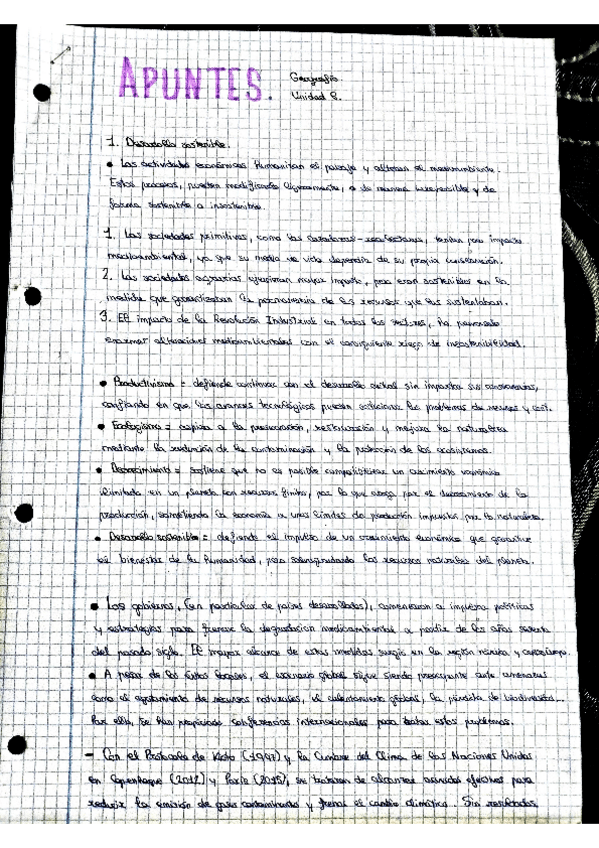 APUNTES.
Geografía
Unidad 8.
1. Desarrollo sostenible.
• Las actividades económicas humanizan el paisaje y alteran el medioambiente.
Estos procesos, pueden modificarlo ligeramente, o de manera irreversible y de
forma sostenible o insostenible.
1. Las sociedades primitivas, como las cazadoras-recolectoras, tenían poco impacto
medioambiental, ya que su medio de vida dependía de su propia conservación.
2. Las sociedades agrarias ejercieron mayor impacto, pero eran sostenibles en la
medida que garantizaban la permanencia de los recursos que las sustentaban.
3. El impacto de la Revolución Industrial en todos los sectores, ha provocado
enormes alteraciones medioambientales con el consiguiente riesgo de insostenibilidad.
• Productivismo = defiende continuar con el desarrollo actual sin importar sus consecuencias,
confiando en que los avances tecnológicos pueden solucionar los problemas de recursos y cost.
• Ecologismo = aspira a la preservación, restauración y mejora de la naturaleza
mediante la reducción de la contaminación y la protección de los ecosistemas.
• Decrecimiento = sostiene que no es posible compatibilizar un crecimiento económico
ilimitado en un planeta con recursos finitos, por lo que aboga por el decrecimiento de la
producción, sometiendo la economía a unos límites de producción impuestos por la naturaleza.
• Desarrollo sostenible = defiende el impulso de un crecimiento económico que garantice
el bienestar de la humanidad, pero salvaguardando los recursos naturales del planeta.
• Los gobiernos, (en particular de países desarrollados), comenzaron a impulsar políticas
y estrategias para frenar la degradación medioambiental a partir de los años setenta
del pasado siglo. El mayor alcance de estas medidas surgió en la región nórdica y
• A pesar de los éxitos locales, el escenario global sigue siendo preocupante ante amenazas
como el agotamiento de recursos naturales, el calentamiento global, la pérdida de biodiversidad...
Por ello, se han propiciado conferencias internacionales para tratar estos problemas.
- Con el Protocolo de Kioto (1997) y la Cumbre del Clima de las Naciones Unidas
en Copenhague (2012) y París (2015), se trataron de alcanzar acuerdos efectivos para
reducir la emisión de gases contaminantes y frenar el cambio climático. Sin resultados